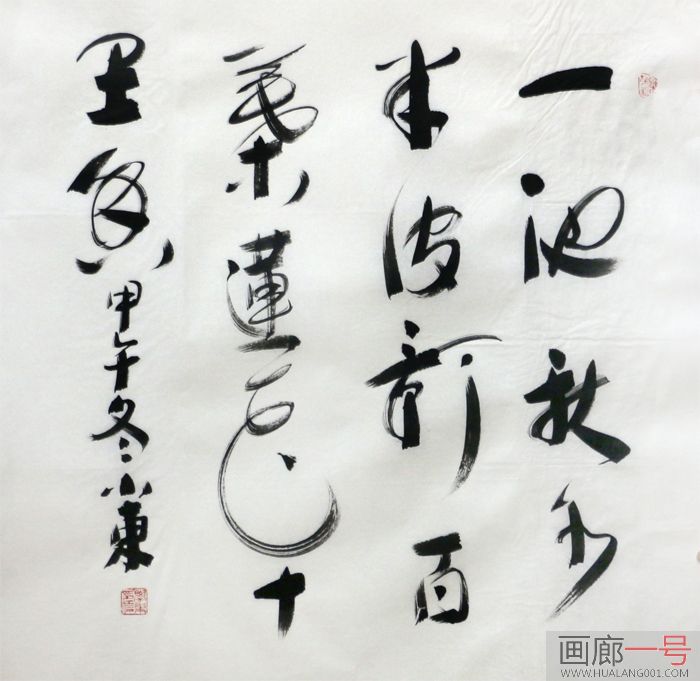 一池秋水
半波新百
葉蓮花十
里香 甲午冬小東
画廊一号
WWW.HUALANG001.COM